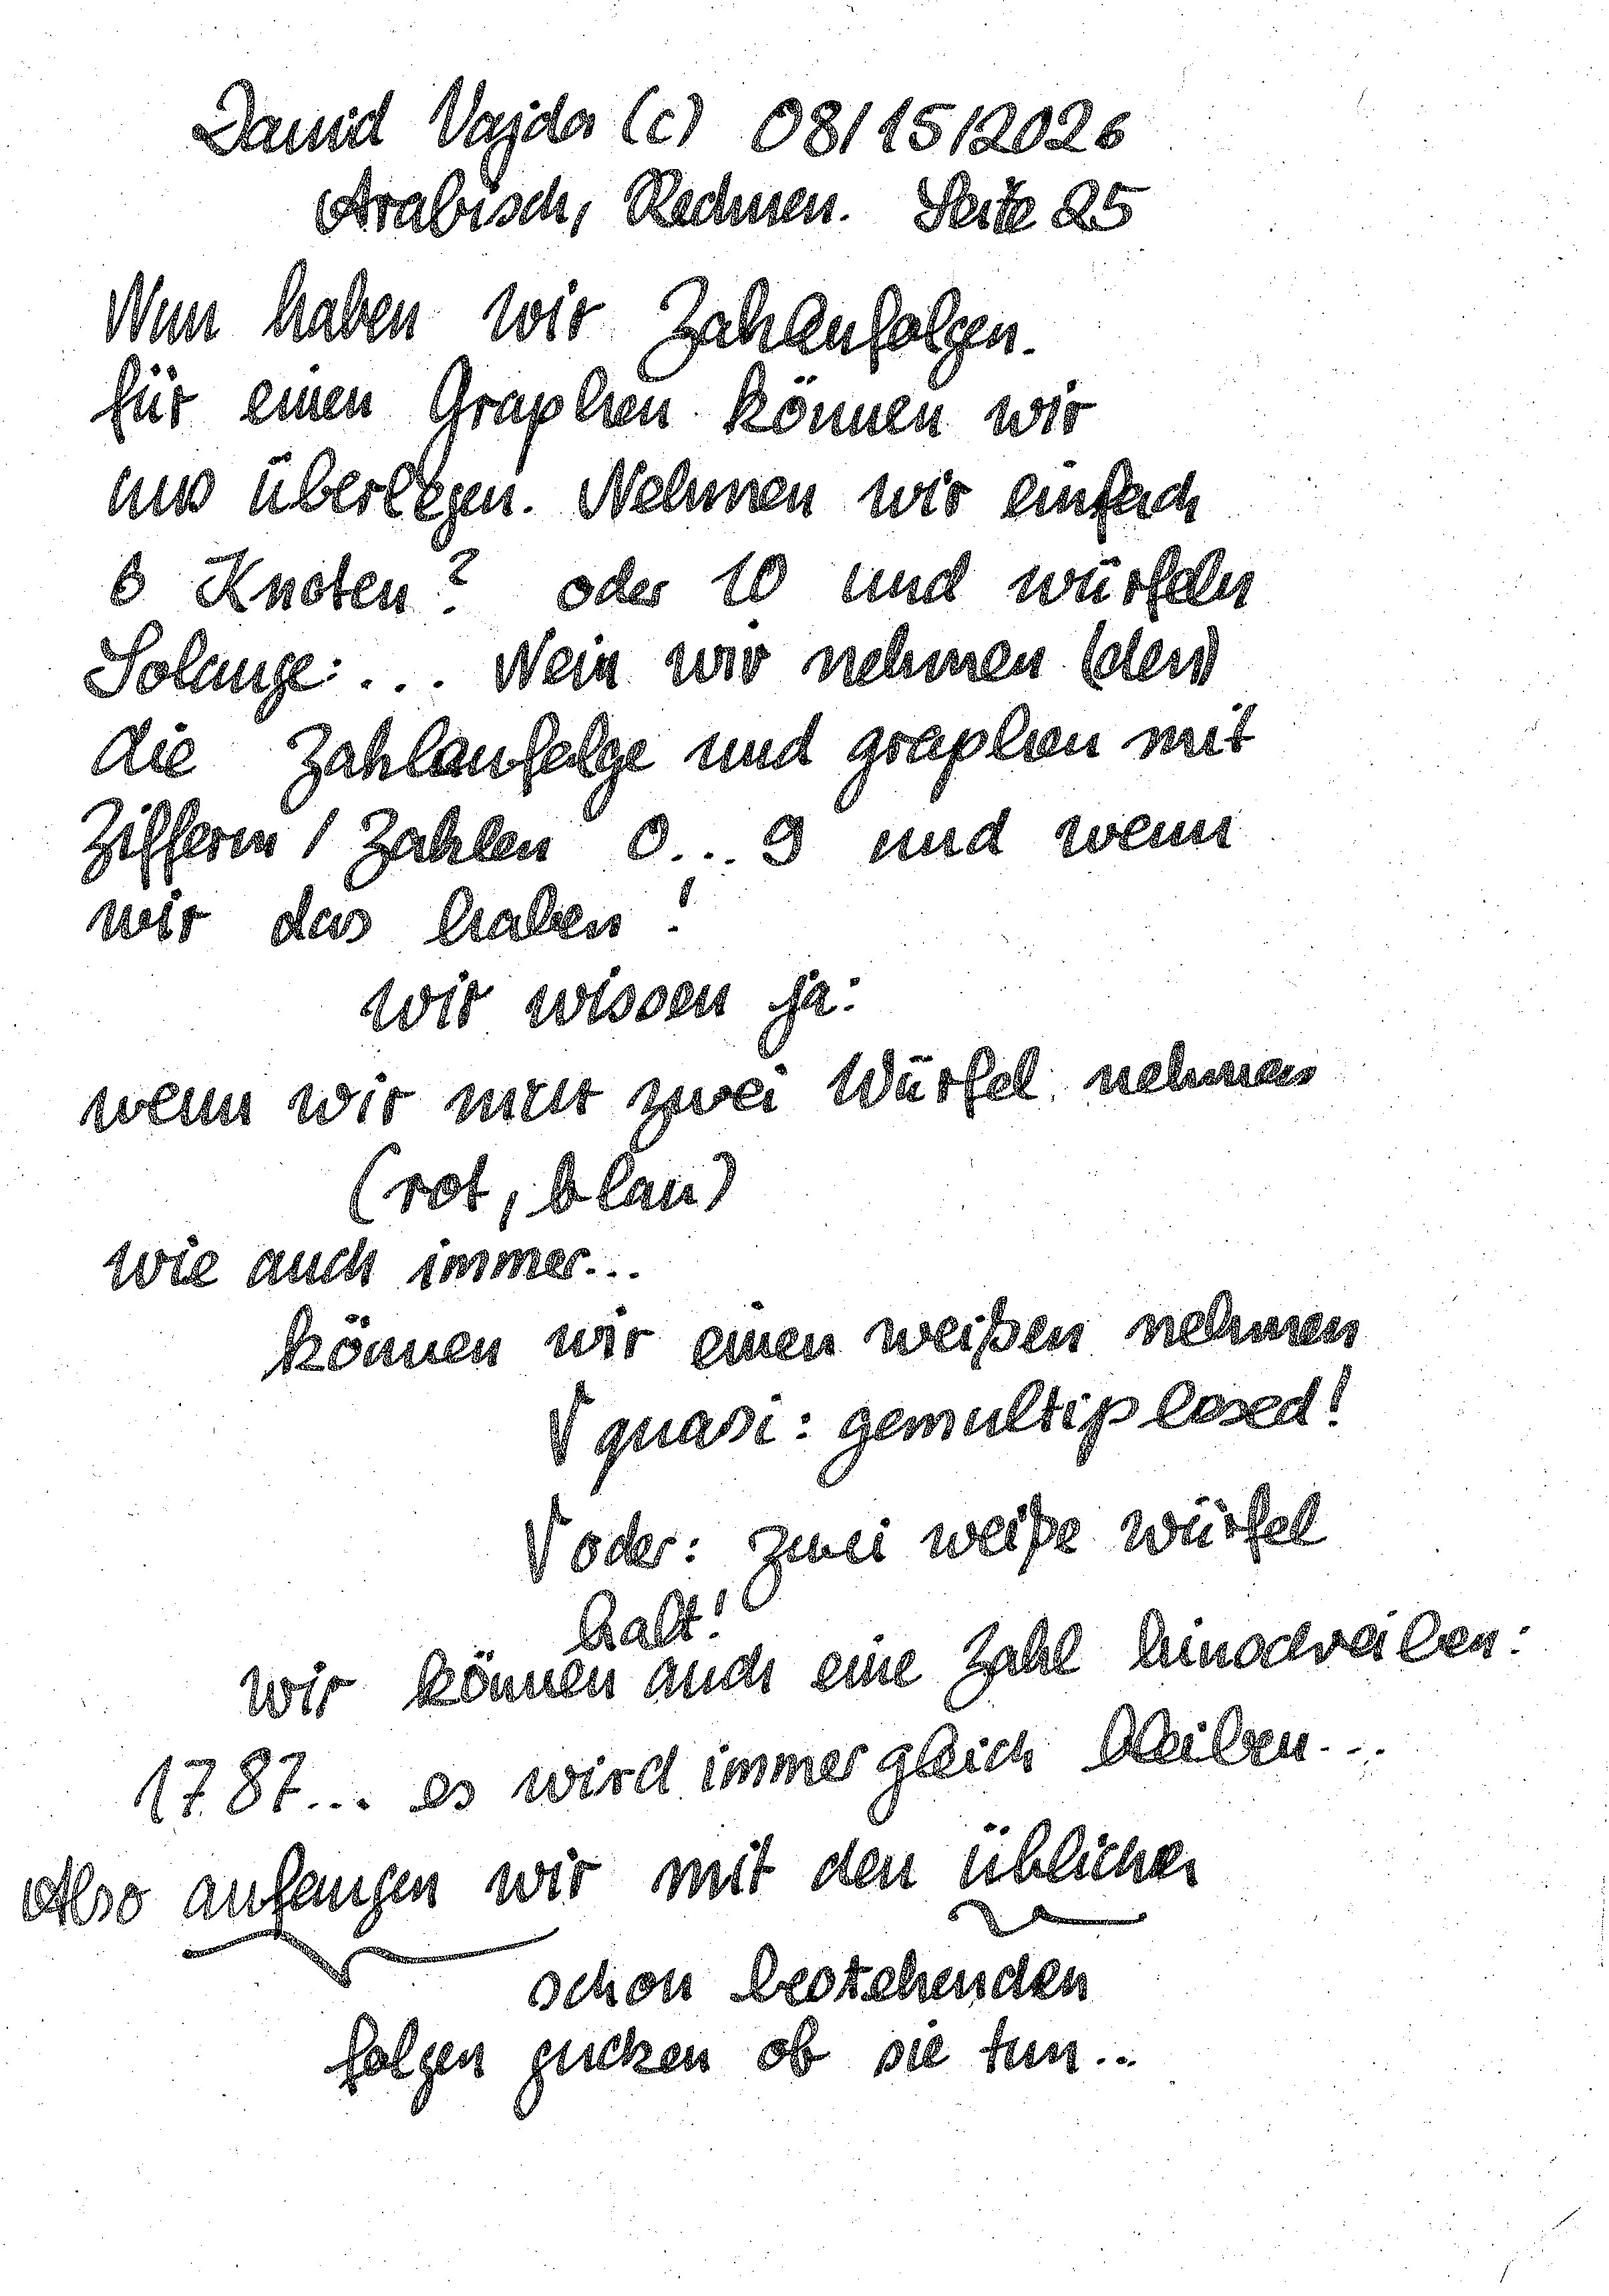 David Vajda (c) 08/15/2026
Arabisch, Rechnen. Seite 25
Nun haben wir Zahlenfolgen.
für einen Graphen können wir
uns überlegen. Nehmen wir einfach
6 Knoten? oder 10 und würfeln
Solange:... Nein wir nehmen (den)
die Zahlenfolge und graphen mit
Ziffern / Zahlen 0...9 und wenn
wir das haben!
wir wissen ja:
wenn wir nicht zwei Würfel nehmen
(rot, blau)
wie auch immer...
können wir einen weißen nehmen
quasi: gemultiplexed!
oder: zwei weiße würfel
halt!
wir können auch eine Zahl hinschreiben:
1787... es wird immer gleich bleiben...
Also anfangen wir mit den üblichen
schon bestehenden
folgen gucken ob sie tun...